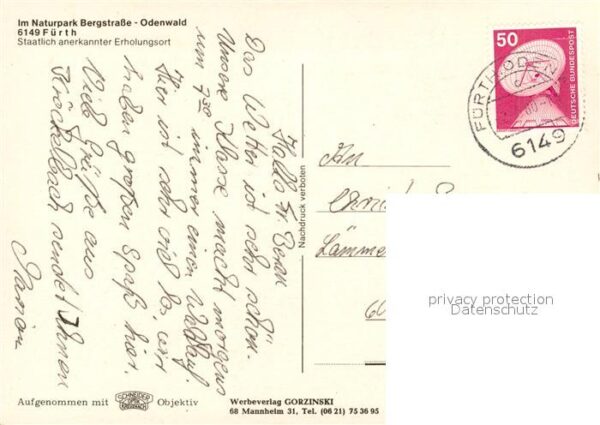 Im Naturpark Bergstraße - Odenwald
6149 Fürth
Staatlich anerkannter Erholungsort
Hallo Fr.
Das Wetter ist sehr schön.
Unsere Klasse macht morgens
um 7³⁰ immer einen Waldlauf.
Hier ist sehr viel los, wir
haben großen Spaß hier.
Viele Grüße aus
Kröckelbach sendet Ihnen
Marion
Nachdruck verboten
An
50
DEUTSCHE BUNDESPOST
FÜRTH, OD
6149
privacy protection
Datenschutz
Aufgenommen mit SCHNEIDER KREUZNACH Objektiv
Werbeverlag GORZINSKI
68 Mannheim 31, Tel. (06 21) 75 36 95